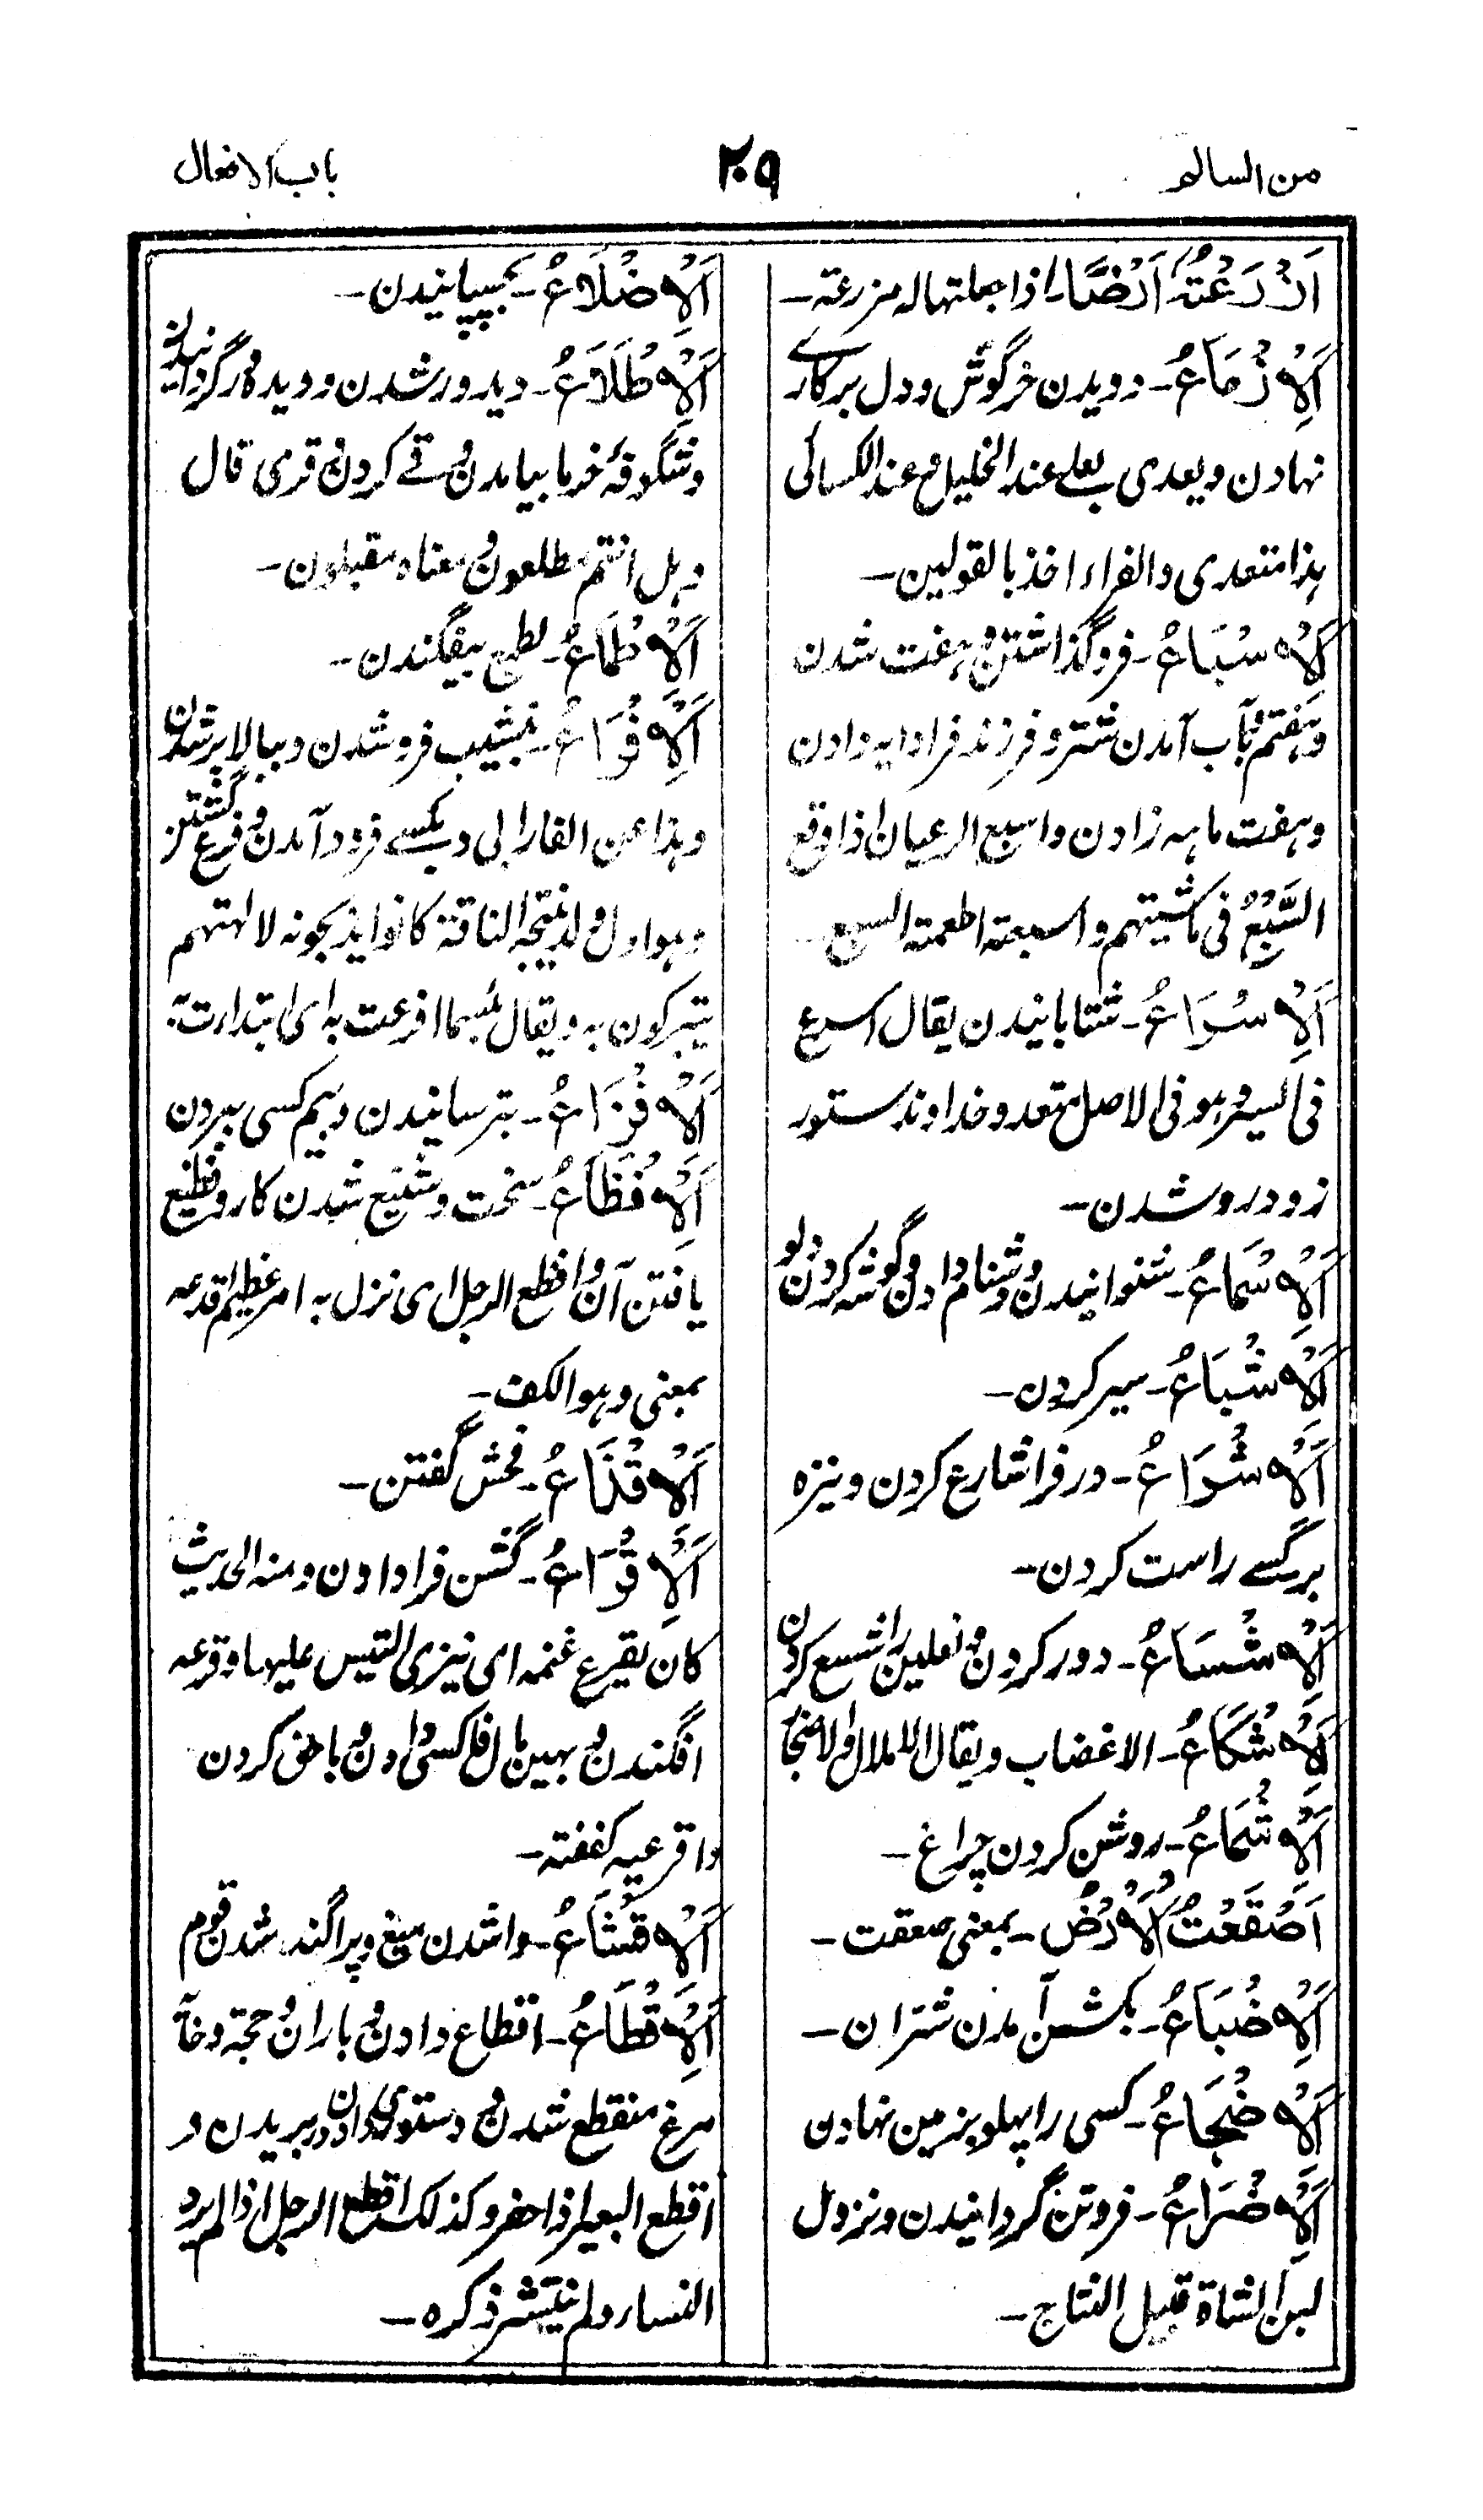 من السالم
۲۰۹
باب الافعال
اَزْرَعْتُهُ اَرْضًا۔ اذا جعلتها له مزرعة۔
اَلْاِزْمَاعُ۔ دویدن خرگوش و دل برکارے
نهادن و یعدی بعلی عند الخلیل و عند الکسائی
هذا متعدی و الفراء اخذ بالقولین۔
اَلْاِسْبَاعُ۔ فروگذاشتن و هفت شدن
و هفتم بآب آمدن شتر و فرزند فرادایه دادن
و هفت ماهه زادن و اسبع الرعیان اذا وقع
السَّبُعُ فی ماشیتهم و اسبعته اطعمته السبع۔
اَلْاِسْرَاعُ۔ شتابانیدن یقال اسرع
فی السیر و هو فی الاصل متعد و خداوند ستور
زود رو شدن۔
اَلْاِسْمَاعُ۔ شنوانیدن و دشنام دادن و گوشه کردن دلو
اَلْاِشْبَاعُ۔ سیر کردن۔
اَلْاِشْرَاعُ۔ در فرا شارع کردن و نیزه
بر کسے راست کردن۔
اَلْاِشْسَاعُ۔ دور کردن و نعلین را شسع کردن
اَلْاِشْکَاعُ۔ الاغضاب و یقال الاملال و الاضجار
اَلْاِشْمَاعُ۔ روشن کردن چراغ۔
اَصْقَعَتِ الْاَرْضُ۔ بمعنی صعقت۔
اَلْاِضْبَاعُ۔ بگشن آمدن شتران۔
اَلْاِضْجَاعُ۔ کسی را پهلو بزمین نهادن
اَلْاِضْرَاعُ۔ فروتن گردانیدن و نزول
لبن الشاة قبیل النتاج۔
اَلْاِضْلَاعُ۔ بچسپانیدن۔
اَلْاِطْلَاعُ۔ دیدور شدن و دیده ور گردانیدن
و شگوفۀ خرما بیامدن و قے کردن و قری قال
و هل انتم مطلعون و معناه مقبلون۔
اَلْاِطْمَاعُ۔ بطمع بیفگندن۔
اَلْاِفْرَاعُ۔ بنشیب فرو شدن و ببالا برشدن
و هذا عن الفارابی و بکسے فرود آمدن و فرع گشتن
و هو اول ولد تنتجه الناقة کانوا یذبحونه لالهتهم
یتبرکون به و یقال بئسما افرعت به ای ابتدات به
اَلْاِفْزَاعُ۔ بترسانیدن و بیم کسی ببردن
اَلْاِفْظَاعُ۔ سخت و شنیع شدن کار و فظیع
یافتن آن و افظع الرجل ای نزل به امر عظیم اقدعه
بمعنی و هو الکف۔
اَلْاِقْذَاعُ۔ فحش گفتن۔
اَلْاِقْرَاعُ۔ گشن فرا دادن و منه الحدیث
کان یقرع غنمه ای ینزی التیس علیها و قرعه
افگندن و بهین مال فا کسی دادن و باحق کردن
و اقرعیه کففته۔
اَلْاِقْشَاعُ۔ واشدن میغ و پراگنده شدن قوم
اَلْاِقْطَاعُ۔ اقطاع دادن و باران و حجة و خایه
مرغ منقطع شدن و دستوری دادن ببریدن و
اقطع البعیر اذا جفر و کذلک اقطع الرجل اذا لم یرد
النساء و لم ینتشر ذکره۔